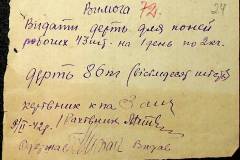 Вимога 72. 24
Видати дерть для коней
робочих 43 шт. на 1 день по 2 кг.
дерть 86 т (вісімдесят шість)
керівник к па
9/II-42р. / Рахівник
Одержав Видав